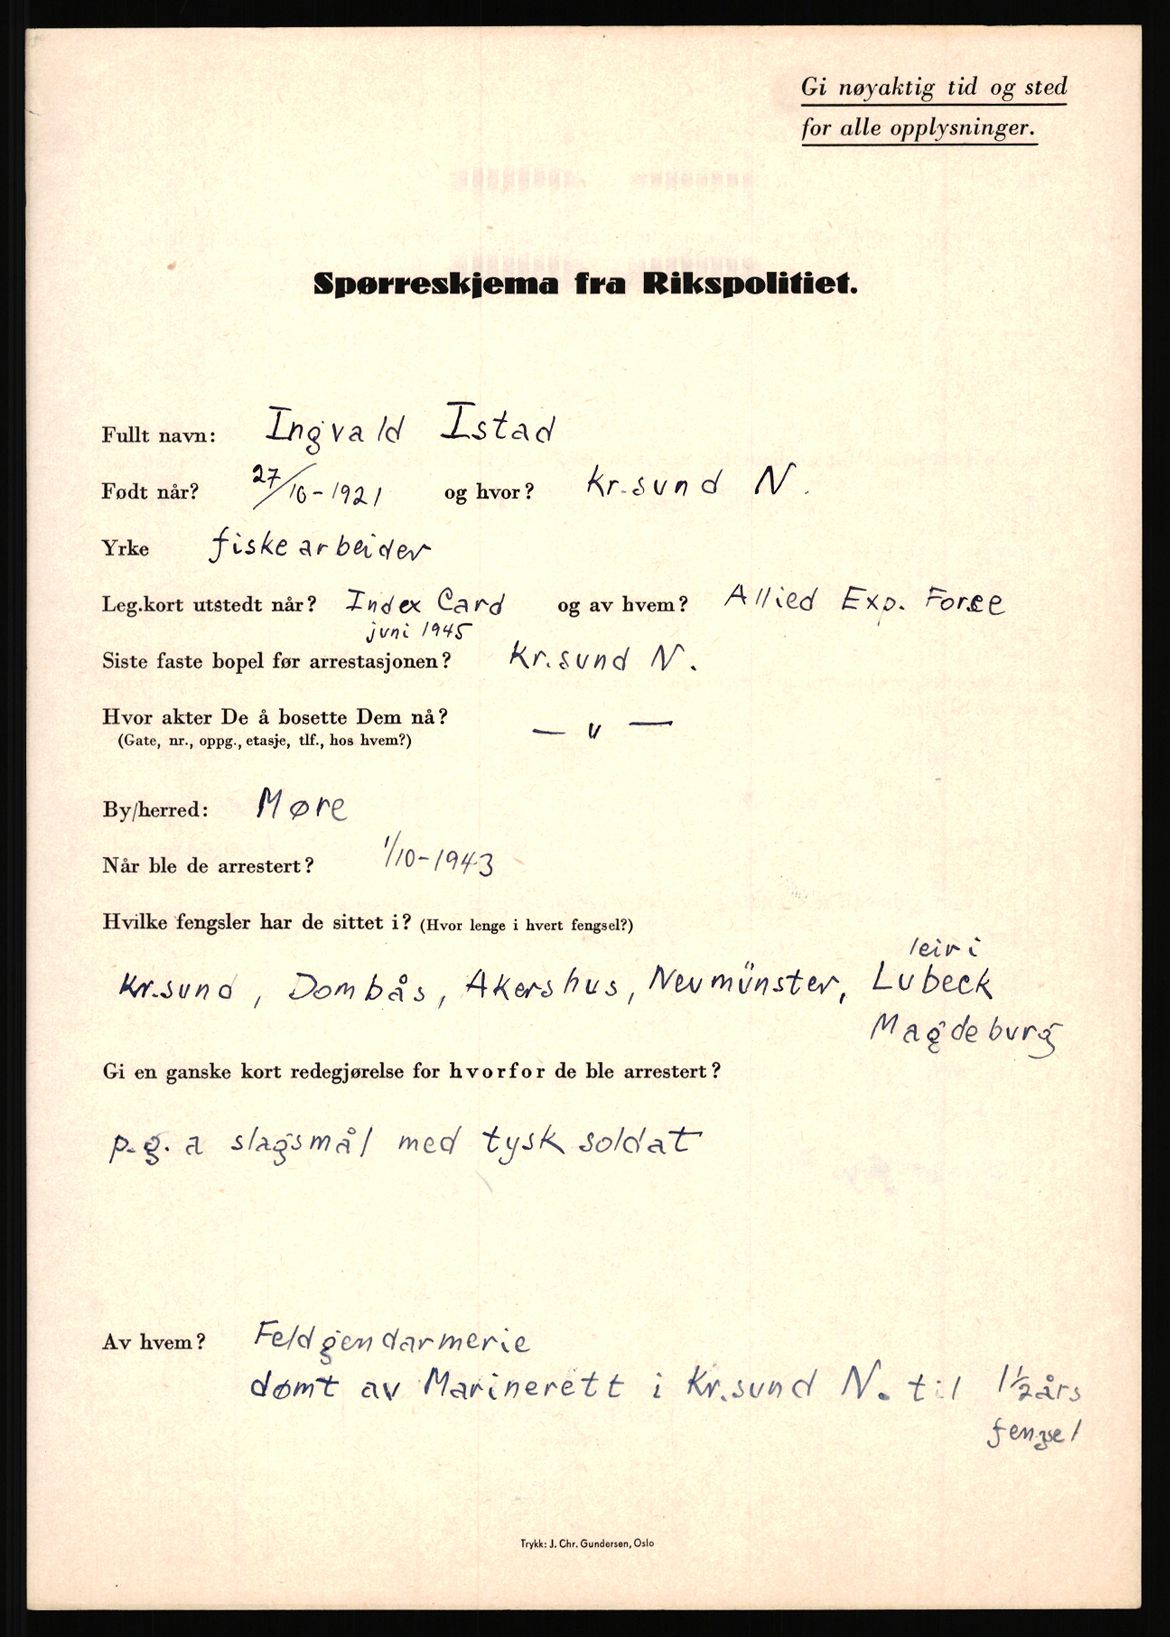 Gi nøyaktig tid og sted
for alle opplysninger.
Spørreskjema fra Rikspolitiet.
Fullt navn: Ingvald Istad
Født når? 27/10-1921 og hvor? Kr.sund N.
Yrke fiskearbeider
Leg.kort utstedt når? Index Card og av hvem? Allied Exp. Force
juni 1945
Siste faste bopel før arrestasjonen? Kr.sund N.
Hvor akter De å bosette Dem nå? — " —
(Gate, nr., oppg., etasje, tlf., hos hvem?)
By/herred: Møre
Når ble de arrestert? 1/10-1943
Hvilke fengsler har de sittet i? (Hvor lenge i hvert fengsel?)
leir i
Kr.sund, Dombås, Akershus, Neumünster, Lubeck
Magdeburg
Gi en ganske kort redegjørelse for hvorfor de ble arrestert?
p.g.a slagsmål med tysk soldat
Av hvem? Feldgendarmerie
dømt av Marinerett i Kr.sund N. til 1½ års
fengsel
Trykk: J. Chr. Gundersen, Oslo